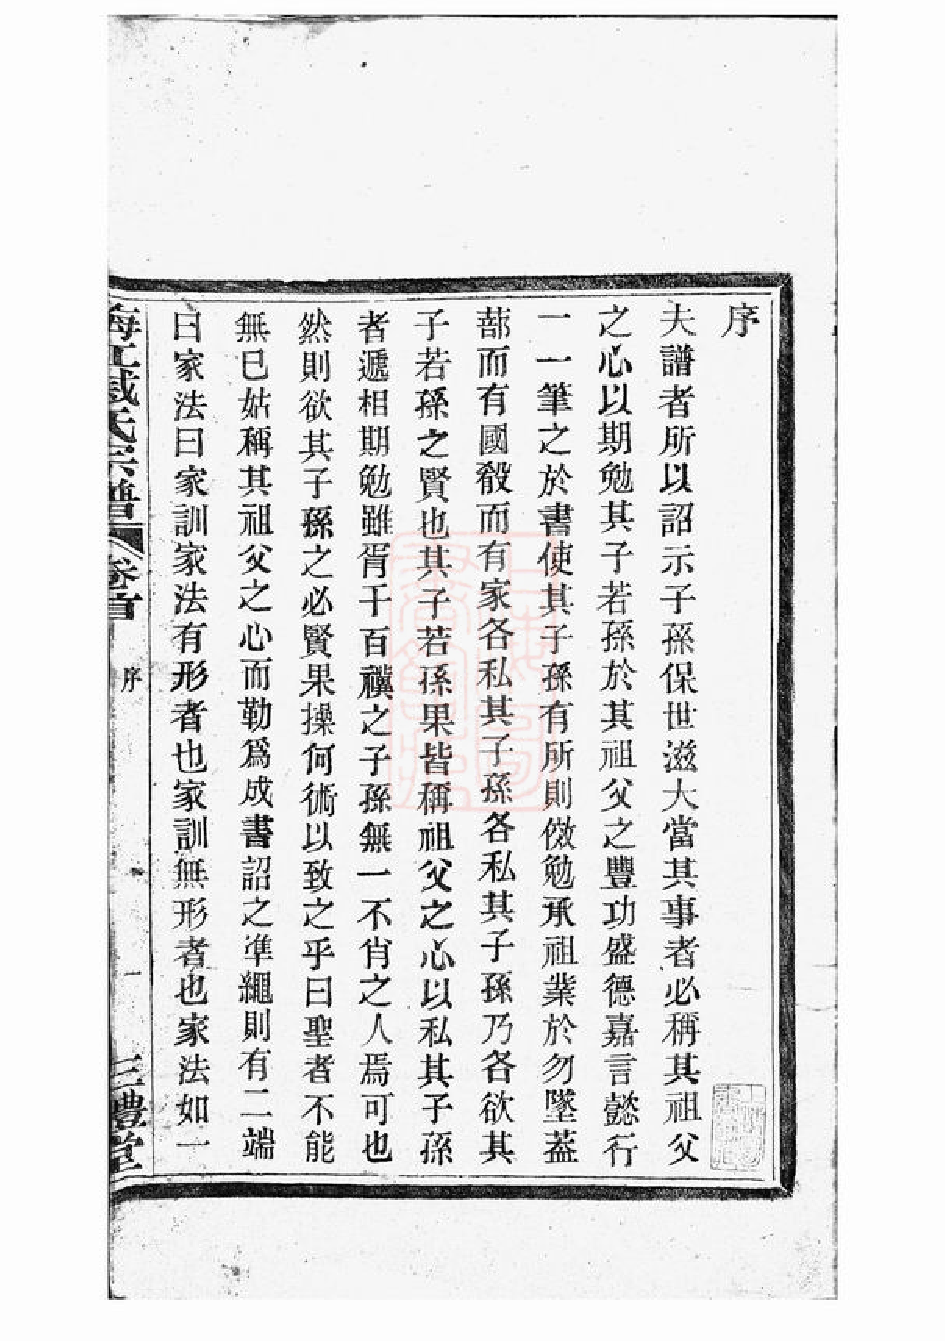 序
夫譜者所以詔示子孫保世滋大當其事者必稱其祖父
之心以期勉其子若孫於其祖父之豐功盛德嘉言懿行
一一筆之於書使其子孫有所則傚勉承祖業於勿墜蓋
蔀而有國殽而有家各私其子孫各私其子孫乃各欲其
子若孫之賢也其子若孫果皆稱祖父之心以私其子孫
者遞相期勉雖胥千百禩之子孫無一不肖之人焉可也
然則欲其子孫之必賢果操何術以致之乎曰聖者不能
無已姑稱其祖父之心而勒爲成書詔之準繩則有二端
曰家法曰家訓家法有形者也家訓無形者也家法如一
海工臧氏宗譜 卷首 序 一 三禮堂